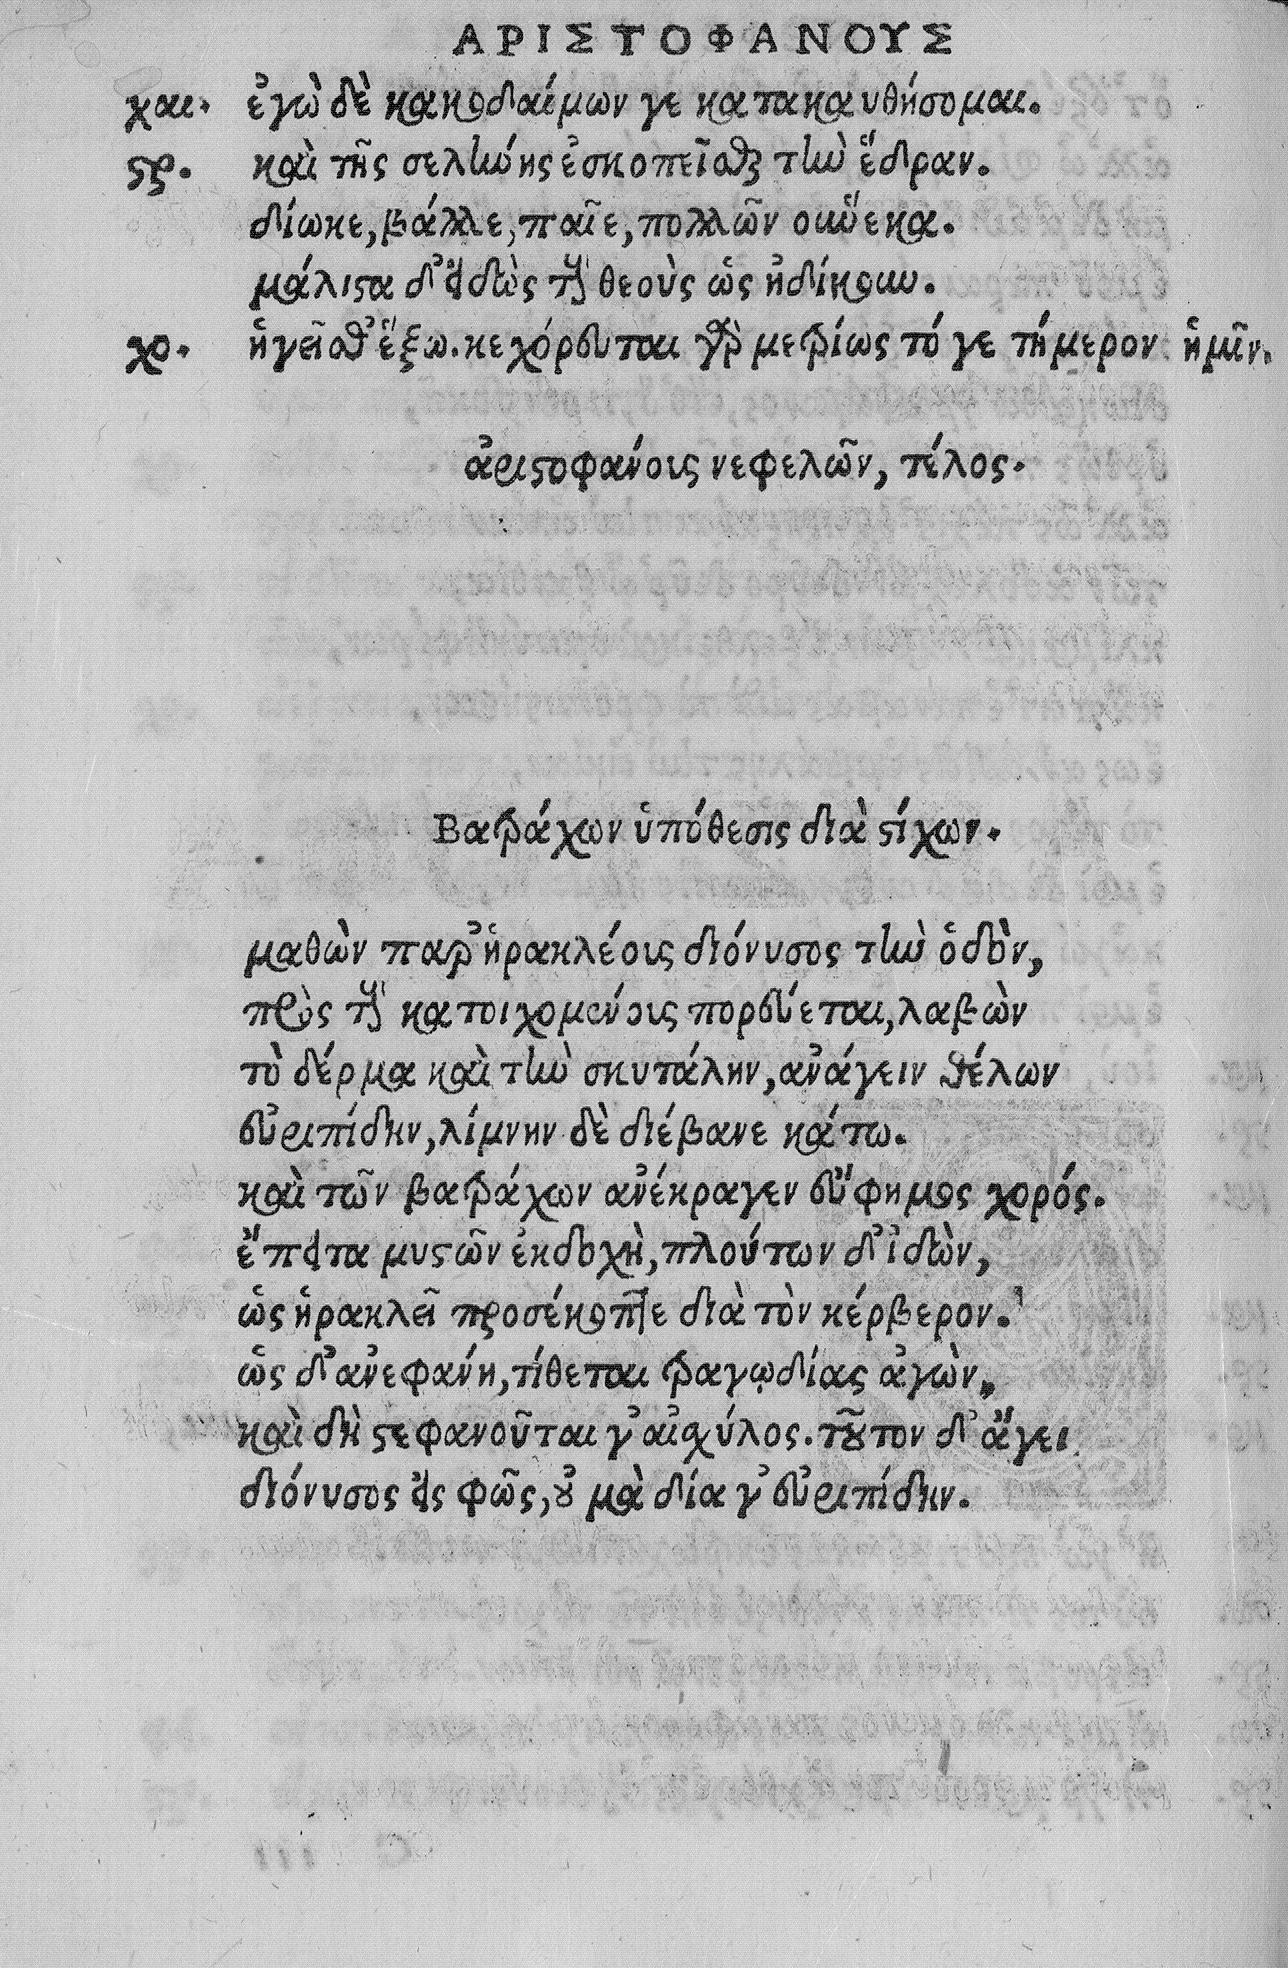 ΑΡΙΣΤΟΦΑΝΟΥΣ
χαι. ἐγὼ δὲ κακοδαίμων γε κατακαυθήσομαι.
στρ. καὶ τῆς σελήνης ἐσκοπεῖσθε τὴν ἕδραν.
δίωκε, βάλλε, παῖε, πολλῶν οὕνεκα.
μάλιστα δ' εἰδὼς τοὺς θεοὺς ὡς ἠδίκουν.
χο. ἡγεῖσθ' ἔξω. κεχόρευται γὰρ μετρίως τό γε τήμερον ἡμῖν.
ἀριστοφάνους νεφελῶν, τέλος.
Βατράχων ὑπόθεσις διὰ στίχων.
μαθὼν παρ' ἡρακλέους διόνυσος τὴν ὁδὸν,
πρὸς τοὺς κατοιχομένους πορεύεται, λαβὼν
τὸ δέρμα καὶ τὴν σκυτάλην, ἀνάγειν θέλων
εὐριπίδην, λίμνην δὲ διέβαινε κάτω.
καὶ τῶν βατράχων ἀνέκραγεν εὔφημος χορός.
ἔπειτα μυστῶν ἐκδοχὴ, πλούτων δ' ἰδὼν,
ὡς ἡρακλεῖ προσέκοπτε διὰ τὸν κέρβερον.
ὡς δ' ἀνεφάνη, τίθεται τραγῳδίας ἀγὼν,
καὶ δὴ στεφανοῦται γ' αἰσχύλος. τοῦτον δ' ἄγει
διόνυσος εἰς φῶς, οὐ μὰ δία γ' εὐριπίδην.